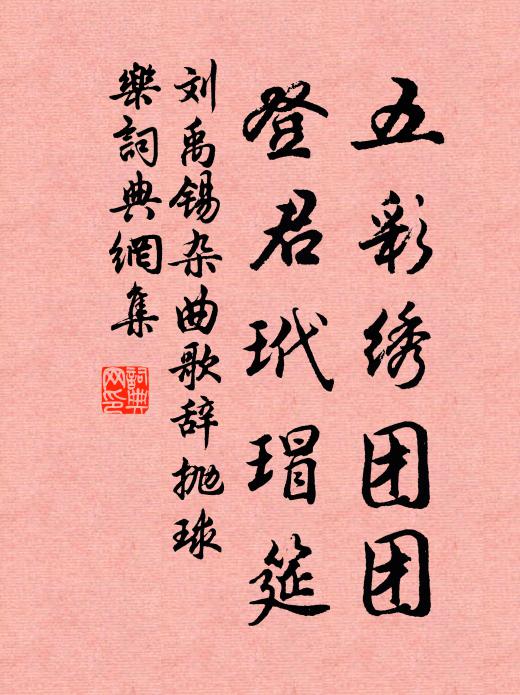 五彩绣团团
登君玳瑁筵
刘禹锡杂曲歌辞抛球
樂詞典網集
詞典网印